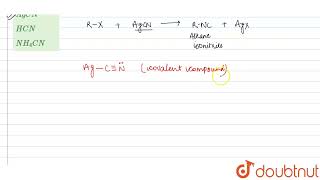 HCN
NH4CN
R-X + AgCN → R-NC + AgX
Alkane
isonitrile
Ag-C≡N̈ (covalent compound)
doubtnut